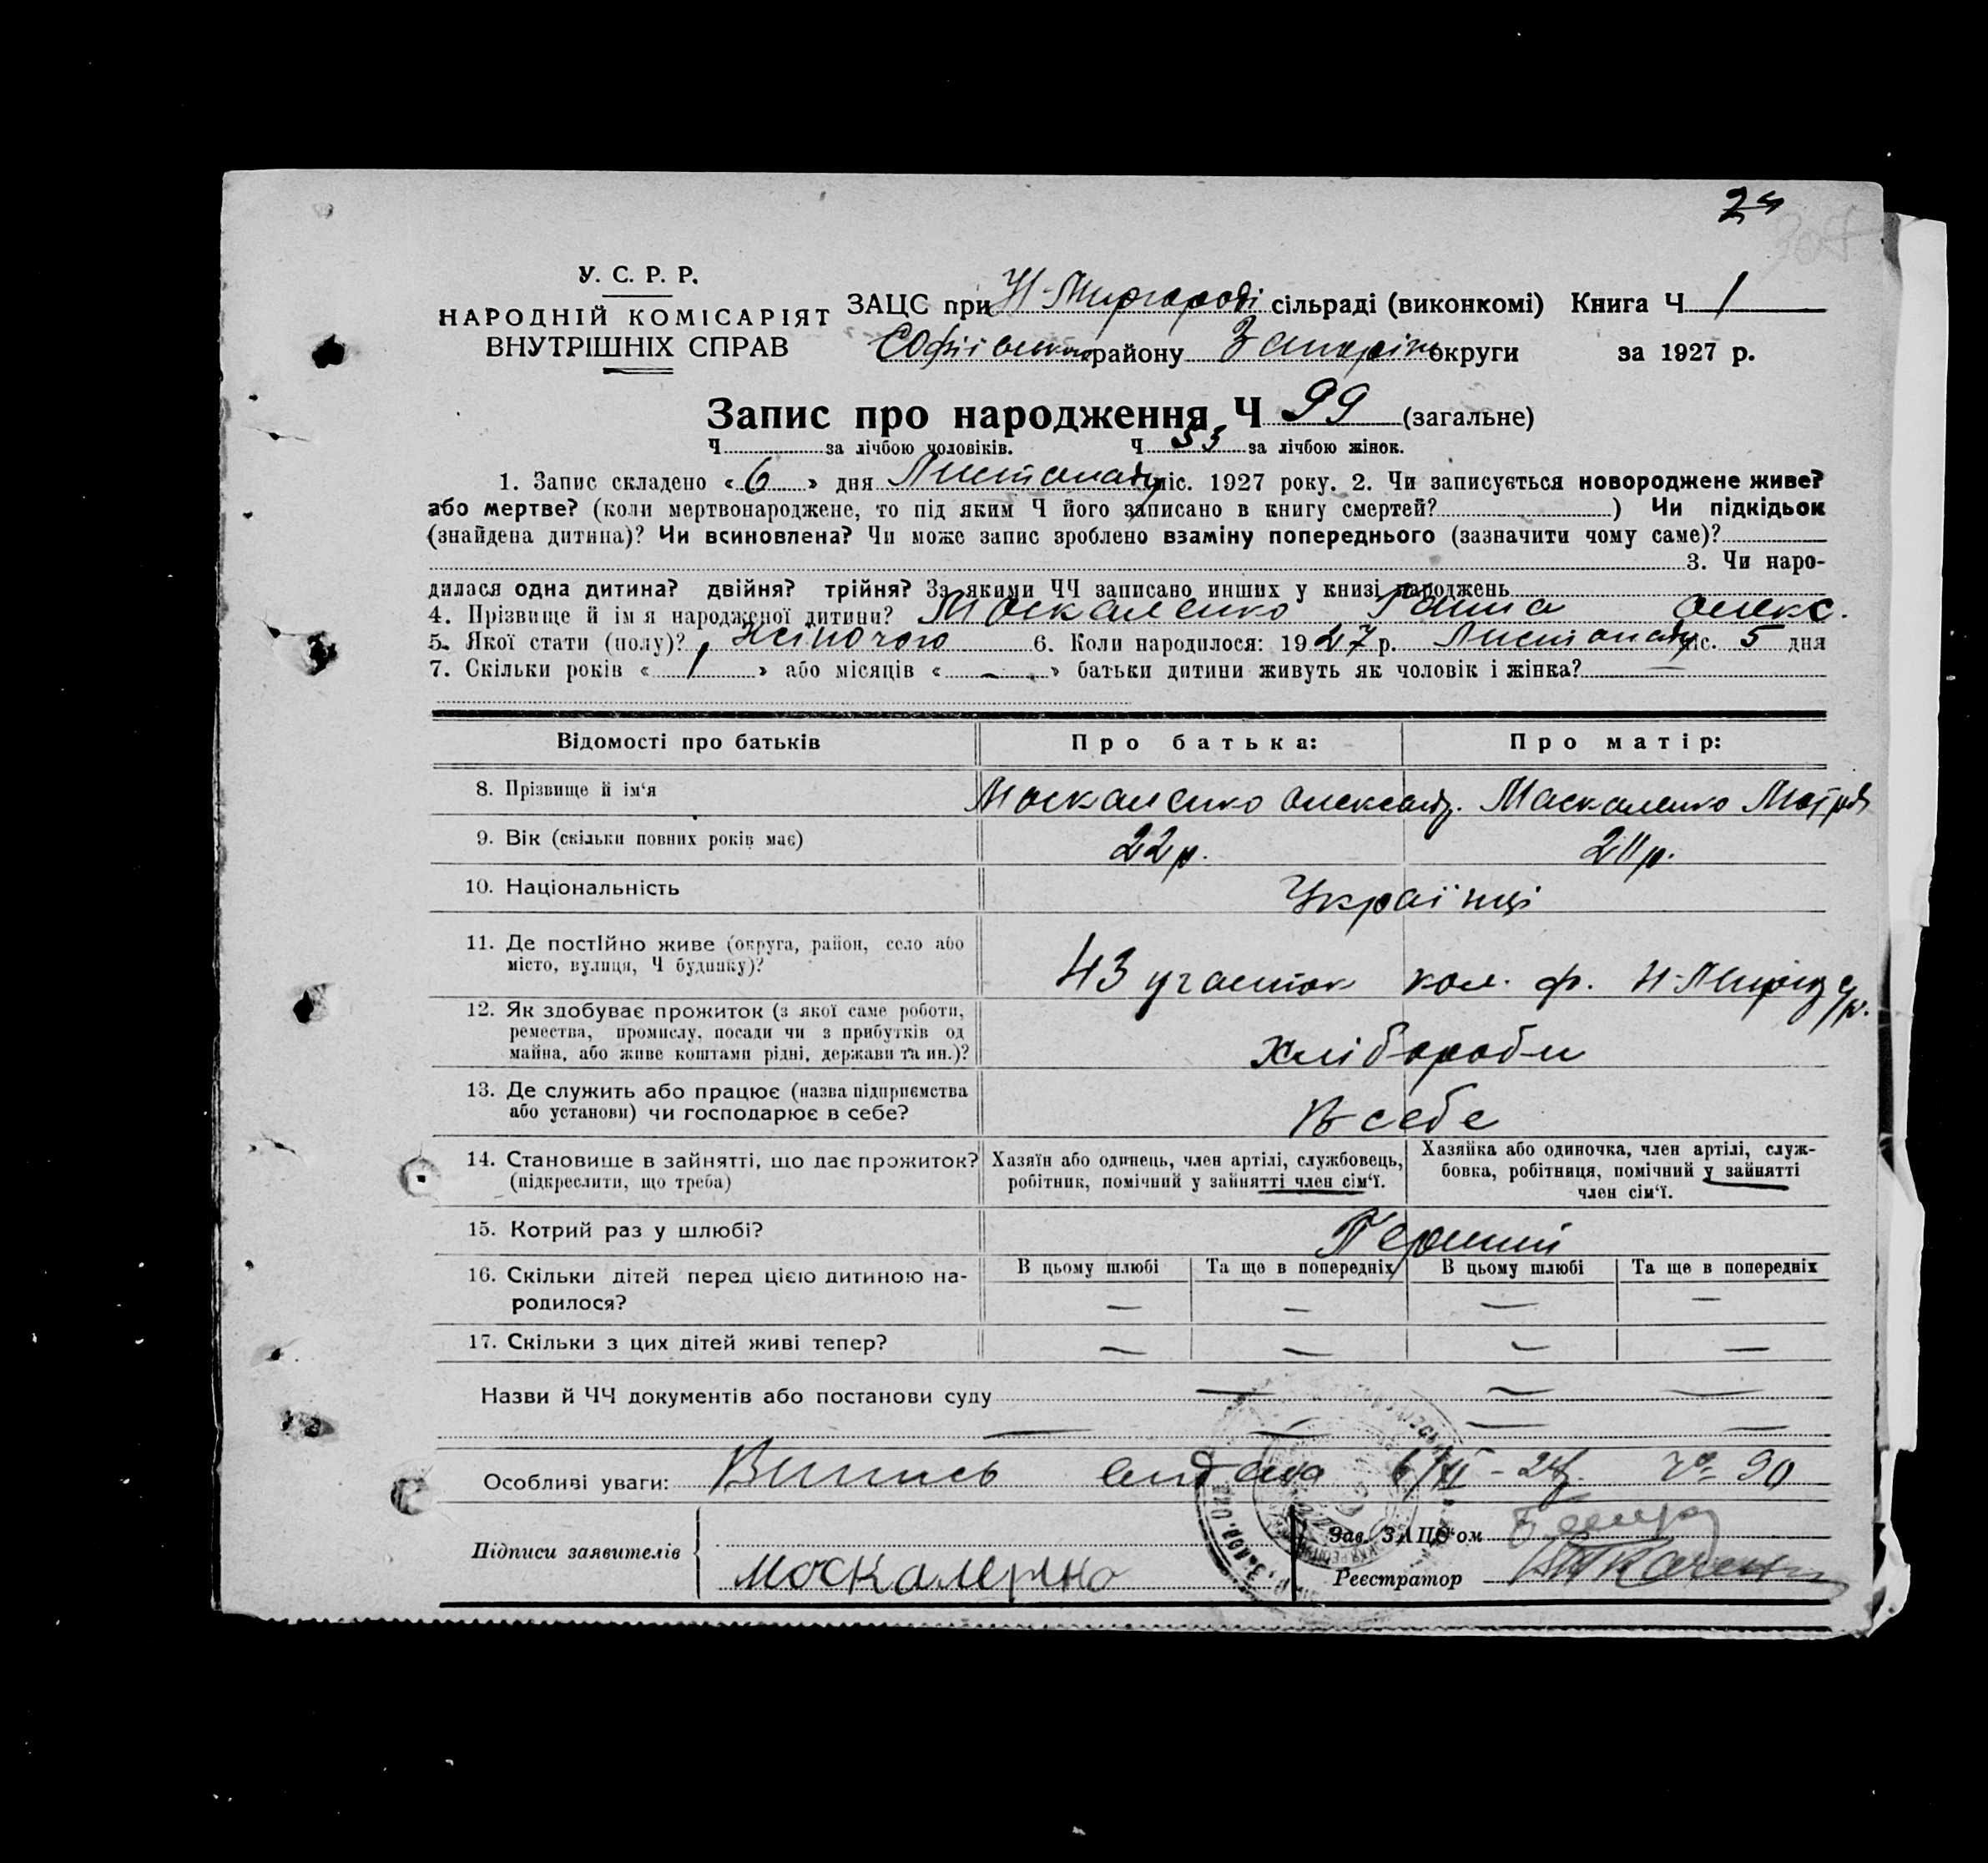 24
У. С. Р. Р.
НАРОДНІЙ КОМІСАРІЯТ
ВНУТРІШНІХ СПРАВ
ЗАЦС при Н-Миргороді сільраді (виконкомі) Книга Ч 1
Софіївськ району Запоріж округи за 1927 р.
Запис про народження Ч 99 (загальне)
Ч за лічбою чоловіків. Ч 53 за лічбою жінок.
1. Запис складено « 6 » дня Листопаду міс. 1927 року. 2. Чи записується новороджене живе?
або мертве? (коли мертвонароджене, то під яким Ч його записано в книгу смертей? ) Чи підкідьок
(знайдена дитина)? Чи всиновлена? Чи може запис зроблено взаміну попереднього (зазначити чому саме)?
3. Чи наро-
дилася одна дитина? двійня? трійня? За якими ЧЧ записано инших у книзі народжень
4. Прізвище й ім я народженої дитини? Москаленко Ганна Олекс.
5. Якої стати (полу)? Жіночого 6. Коли народилося: 1927 р. Листопаду міс. 5 дня
7. Скільки років « 1 » або місяців « – » батьки дитини живуть як чоловік і жінка? –
Відомості про батьків Про батька: Про матір:
8. Прізвище й ім‘я Москаленко Олександ. Маскаленко Мотря
9. Вік (скільки повних років має) 22 р. 21 р.
10. Національність Українці
11. Де постІйно живе (округа, район, село або
місто, вулиця, Ч будинку)? 43 участок кол. ф. Н-Миргор с/р.
12. Як здобуває прожиток (з якої саме роботи,
ремества, промислу, посади чи з прибутків од
майна, або живе коштами рідні, держави та ин.)? Хлібороби
13. Де служить або працює (назва підприємства
або установи) чи господарює в себе? В себе
14. Становище в зайнятті, що дає прожиток?
(підкреслити, що треба)
Хазяїн або одинець, член артілі, службовець,
робітник, помічний у зайнятті член сім‘ї.
Хазяйка або одиночка, член артілі, служ-
бовка, робітниця, помічний у зайнятті
член сім‘ї.
15. Котрий раз у шлюбі? Перший
16. Скільки дітей перед цією дитиною на-
родилося?
В цьому шлюбі Та ще в попередніх В цьому шлюбі Та ще в попередніх
– – – –
17. Скільки з цих дітей живі тепер? – – – –
Назви й ЧЧ документів або постанови суду – – –
– – – –
Особливі уваги: Випись видана 6/XI-27р. Ч 90
Підписи заявителів Москаленко
Зав. ЗАЦС‘ом
Реєстратор Ткаченко